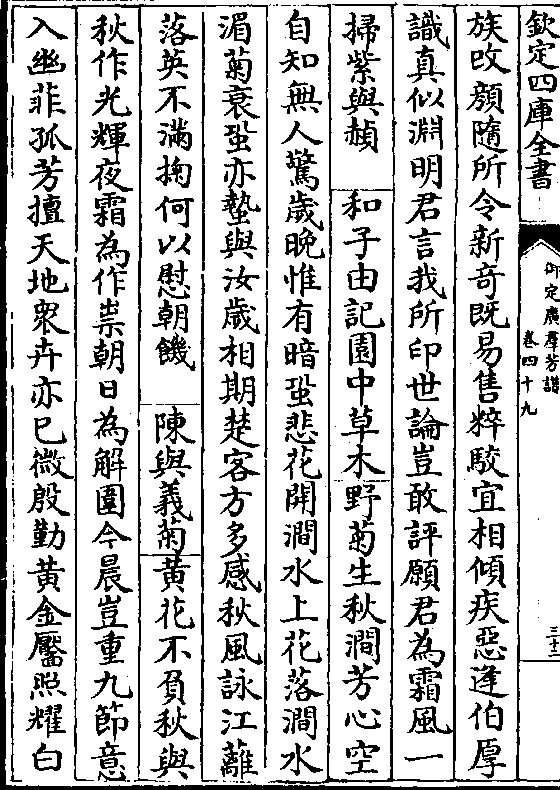 欽定四庫全書
御定廣羣芳譜
卷四十九
三十二
族改顔隨所令新奇既易售粹駮宜相傾疾惡逢伯厚
識真似淵明君言我所印世論豈敢評願君為霜風一
掃紫與赬 和子由記園中草木 野菊生秋澗芳心空
自知無人驚歲晚惟有暗蛩悲花開澗水上花落澗水
湄菊衰蛩亦蟄與汝歲相期楚客方多感秋風詠江蘺
落英不滿掬何以慰朝饑 陳與義菊 黃花不負秋與
秋作光輝夜霜為作祟朝日為解圍今晨豈重九節意
入幽菲孤芳擅天地衆卉亦已微殷勤黃金靨照耀白